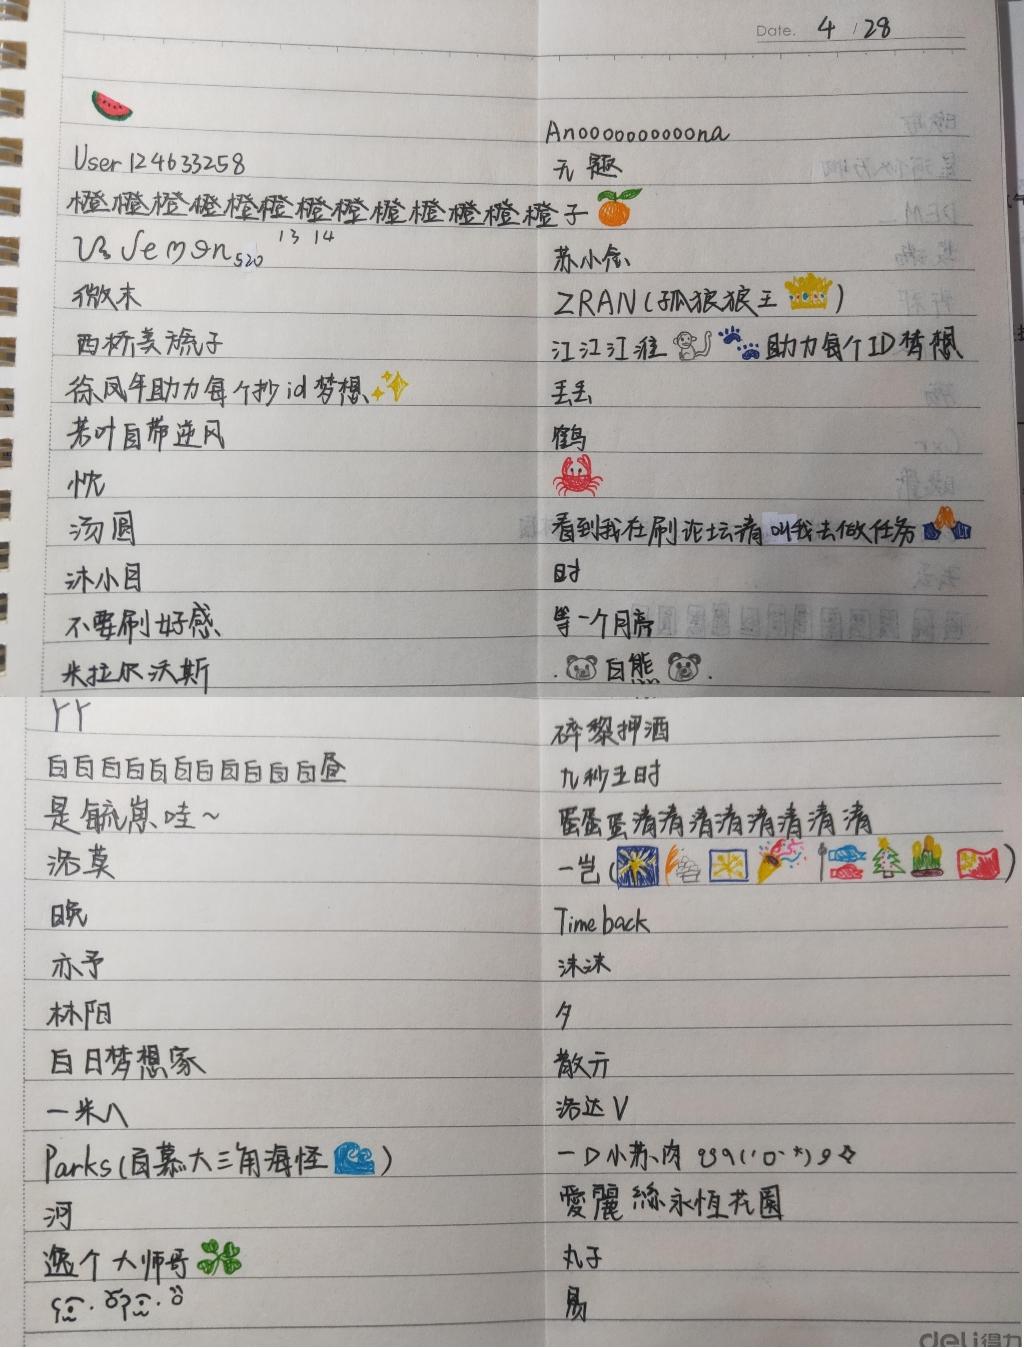 Date. 4 / 28
Anoooooooooona
User124633258
无趣
橙橙橙橙橙橙橙橙橙橙橙橙橙子
520 13 14
苏小念
微木
ZRAN(孤狼狼王)
西桥美琉子
江江江淮 助力每个ID梦想
徐风年助力每个抄id梦想
丢丢
若叶自带逆风
鹤
忱
汤圆
看到我在刷论坛请叫我去做任务
沐小目
时
不要刷好感
等一个月亮
米拉尔沃斯
白熊
丫丫
碎黎押酒
白白白白白白白白白白白昼
九秒五时
是毓崽哇~
蛋蛋蛋清清清清清清清清
洛莫
一岂(
)
晚
Time back
亦予
沐沐
林阳
夕
白日梦想家
散亓
一米八
洛达V
Parks(百慕大三角海怪)
一口小苏肉
河
愛麗絲永恆花園
逸个大师哥
丸子
易
deli得力